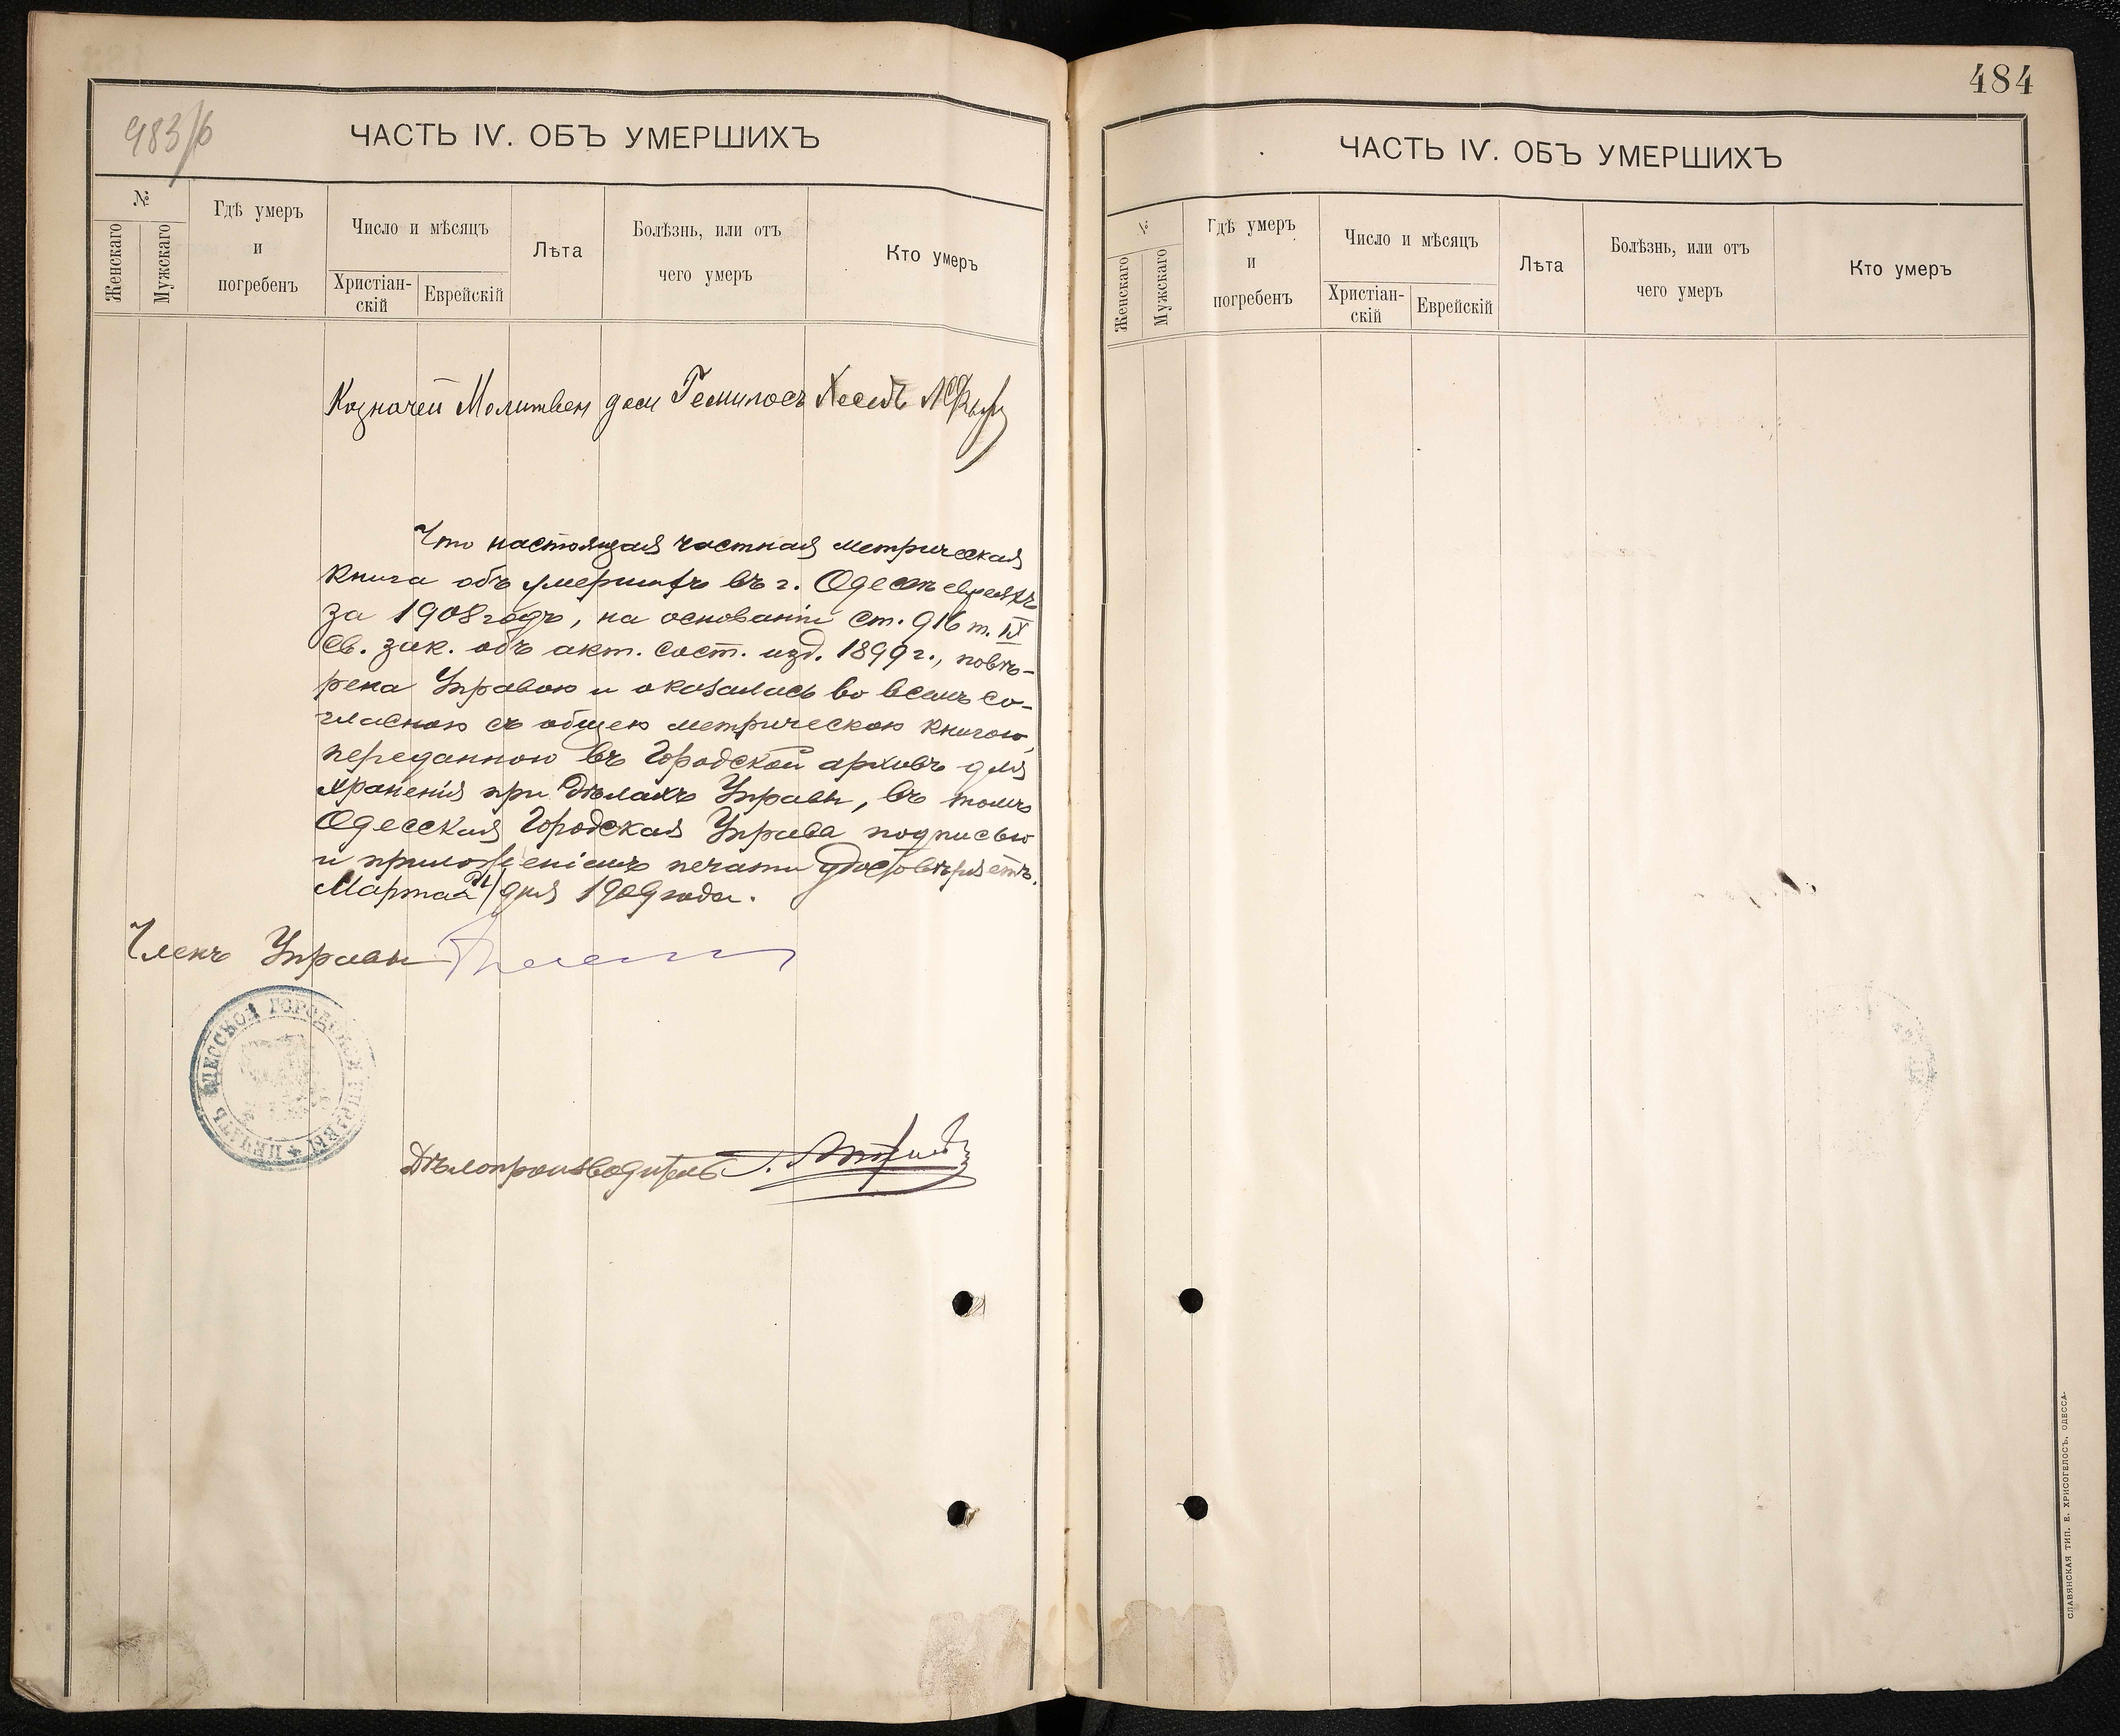 983/б
ЧАСТЬ IV. ОБЪ УМЕРШИХЪ
№
Женскаго
Мужскаго
Гдѣ умеръ
и
погребенъ
Число и мѣсяцъ
Христіан-
скій
Еврейскій
Лѣта
Болѣзнь, или отъ
чего умеръ
Кто умеръ
Казначей Молитвен дом Гемилосъ Хеседъ
Что настоящая частная метрическая
книга объ умершихъ въ г. Одессѣ евреяхъ
за 1908 годъ, на основаніи ст. 916 т. IX
Св. зак. объ акт. сост. изд. 1899 г., повѣ-
рена Управою и оказалась во всемъ со-
гласною съ общею метрическою книгою,
переданною въ Городской архивъ для
храненія при дѣлахъ Управы, въ томъ
Одесская Городская Управа подписью
и приложеніемъ печати удостовѣряетъ.
Марта дня 1909 года.
Членъ Управы
ПЕЧАТЬ ОДЕССКОЙ ГОРОДСКОЙ УПРАВЫ
Дѣлопроизводитель
484
ЧАСТЬ IV. ОБЪ УМЕРШИХЪ
№
Женскаго
Мужскаго
Гдѣ умеръ
и
погребенъ
Число и мѣсяцъ
Христіан-
скій
Еврейскій
Лѣта
Болѣзнь, или отъ
чего умеръ
Кто умеръ
СЛАВЯНСКАЯ ТИП. Е. ХРИСОГЕЛОСЪ, ОДЕССА.